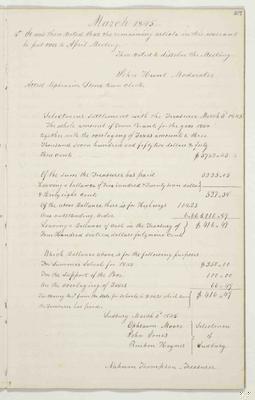 March 1845.
5th It was then voted that the remaining article in this warrant
be put over to April Meeting.
Then voted to dissolve the Meeting.
John Hunt Moderator
Attest Ephraim Stone Town Clerk
Selectmens Settlement with the Treasurer March 3d 1845
The whole amount of Town Grants for the year 1844
together with the overlayings of Taxes amounts to three
Thousand seven hundred and fifty two dollars & forty
three Cents
Of the sum the Treasurer has paid
Leaving a ballance of five hundred & twenty seven dollars
& thirty eight Cents 527.38
Of the above Ballance there is for Highways
One outstanding order
Leaving a Ballance of Cash in the Treasury of $416.47
Four Hundred sixteen dollars forty seven Cents
Which Ballance above is for the following purposes
For Summer Schools for 1845 $250.00
For the Support of the Poor 100.00
In the overlayings of Taxes 66.47
$416.47
the Treasurer has paid.
Sudbury March 3d 1845
Ephraim Moore Selectmen
John Jones of
Reuben Haynes Sudbury
Nahum Thompson Treasurer